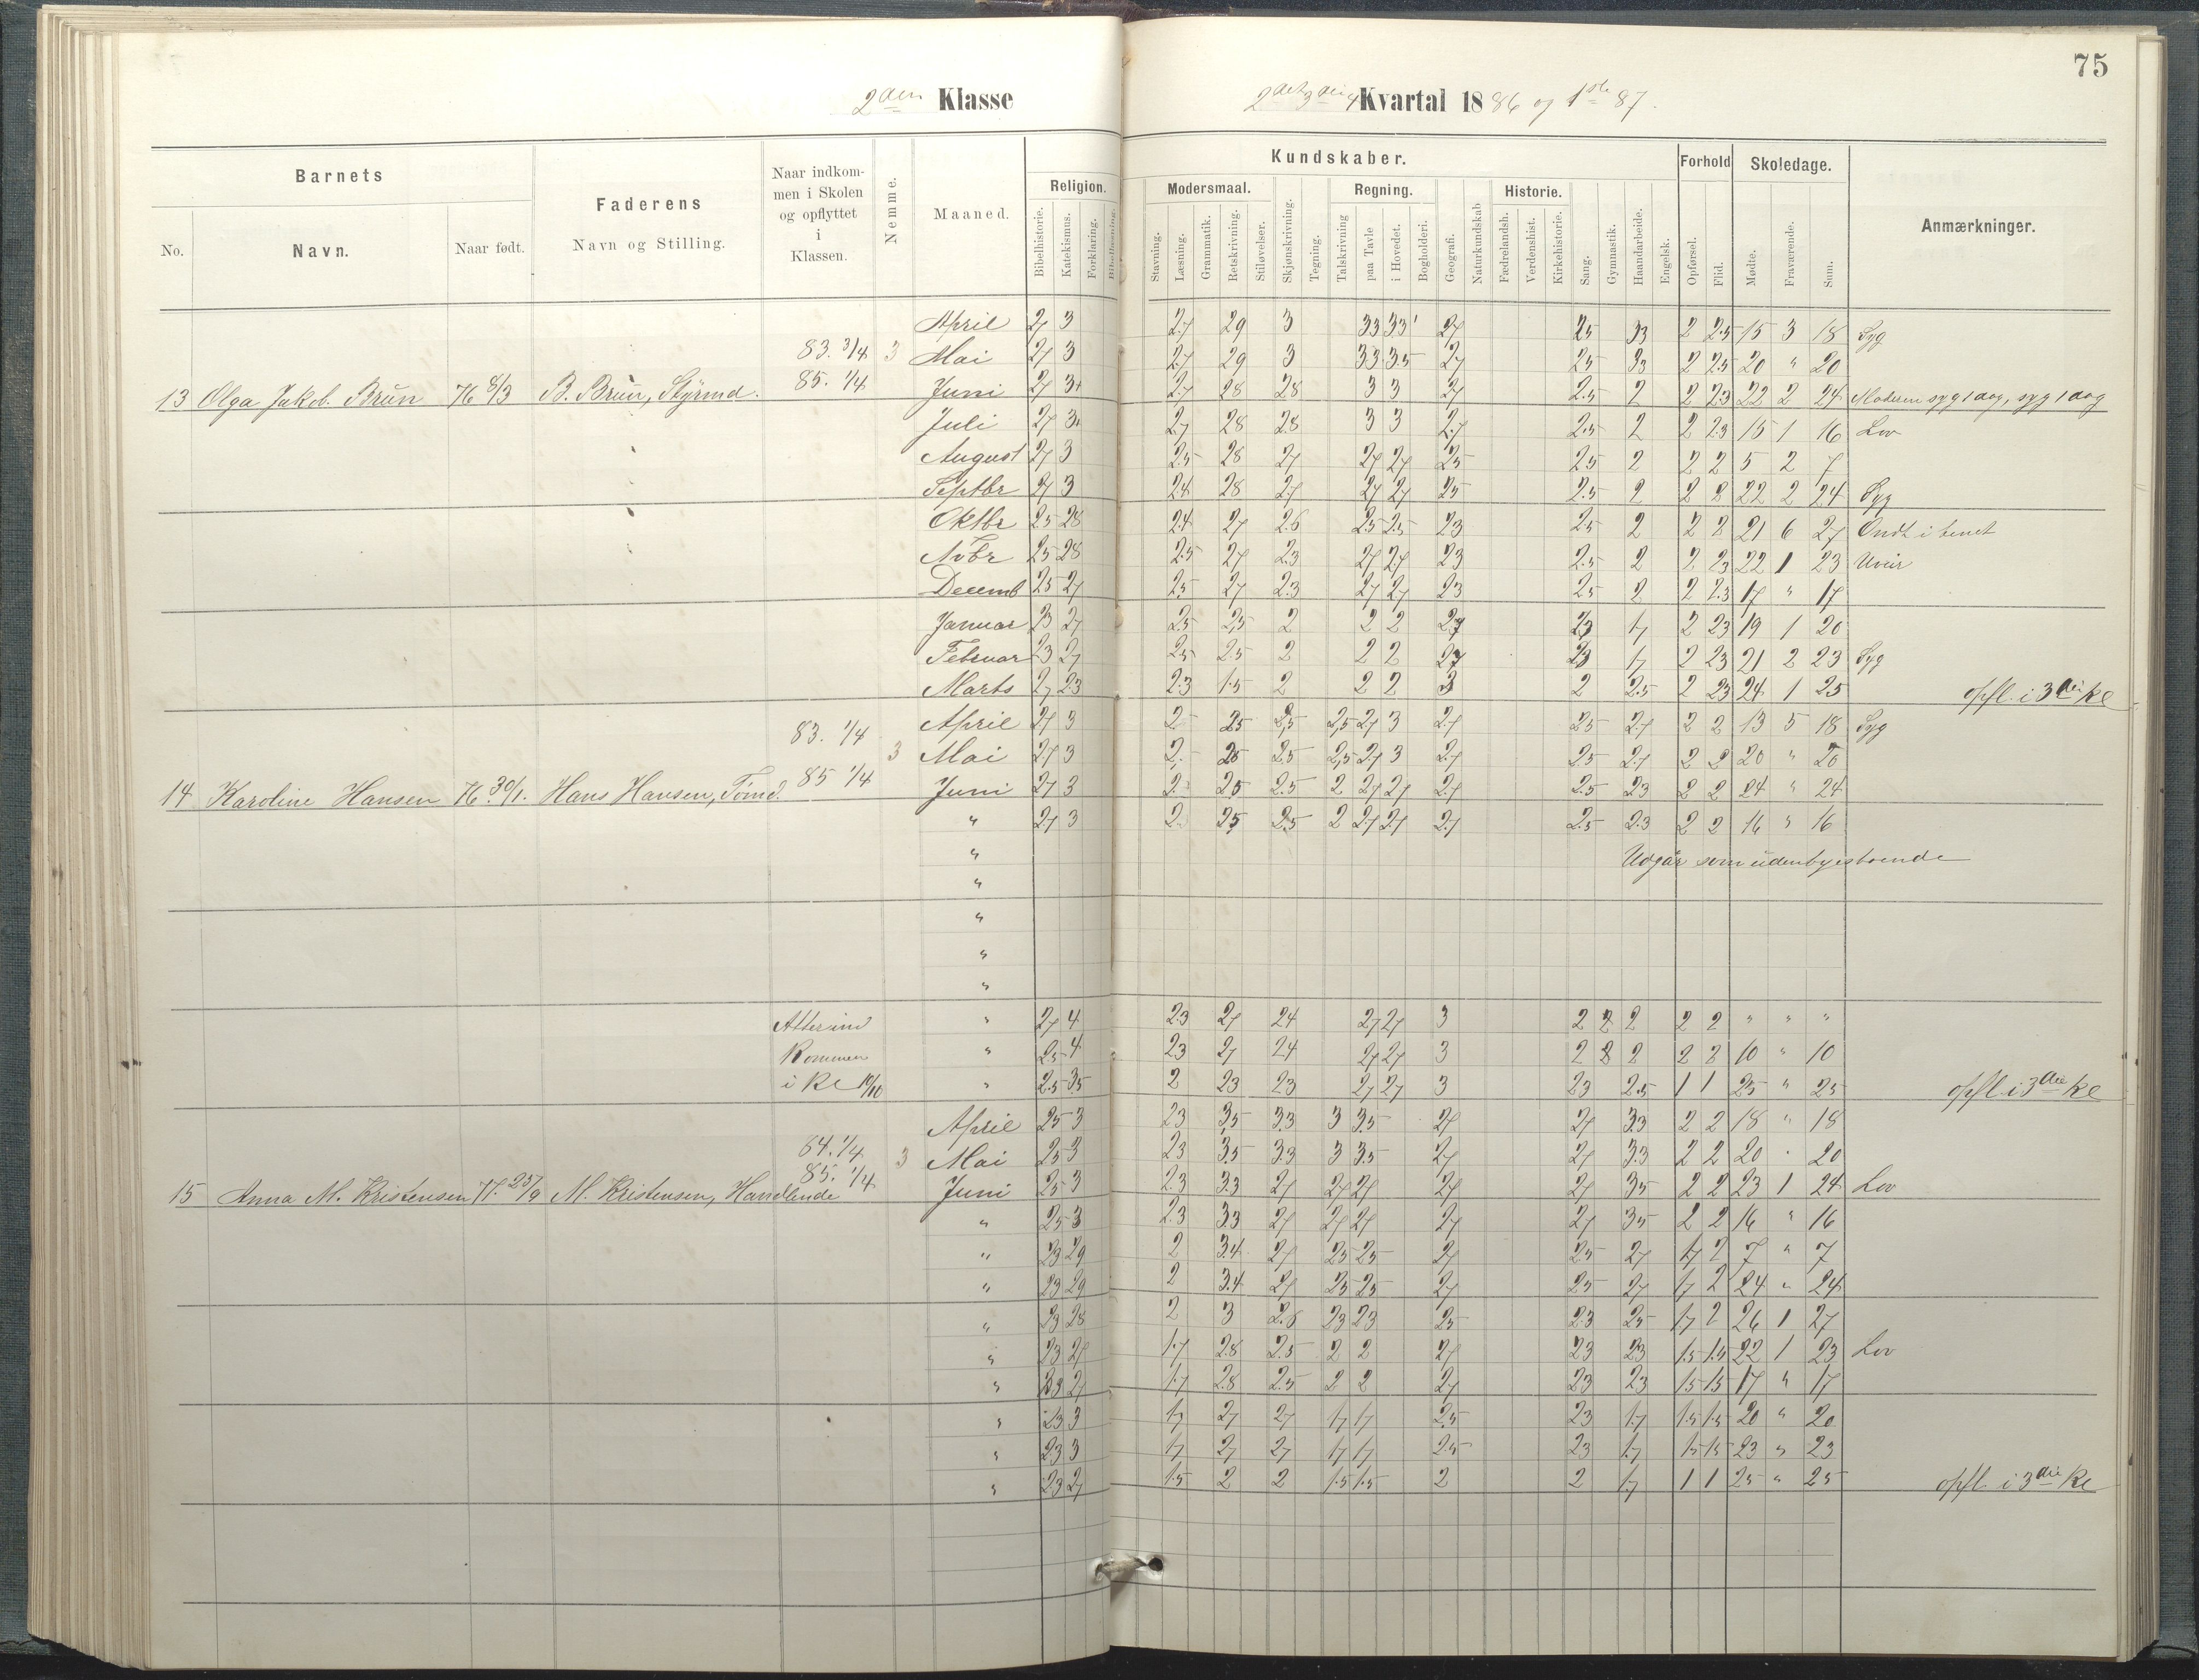 75
2den Klasse 2det 3die 4 Kvartal 1886 og 1ste 87.
Barnets Faderens Naar indkommen i Skolen og opflyttet i Klassen. Nemme. Maaned. Kundskaber. Forhold Skoledage. Anmærkninger.
Religion. Modersmaal. Regning. Historie.
No. Navn. Naar født. Navn og Stilling. Bibelhistorie. Katekismus. Forklaring. Bibellæsning. Stavning. Læsning. Grammatik. Retskrivning. Stiløvelser. Skjønskrivning. Tegning. Talskrivning paa Tavle i Hovedet. Bogholderi. Geografi. Naturkundskab Fædrelandsh. Verdenshist. Kirkehistorie. Sang. Gymnastik. Haandarbeide. Engelsk. Opførsel. Flid. Mødte. Fraværende. Sum.
April 27 3 27 29 3 33 33 27 25 33 2 25 15 3 18 Syg
83. 3/4 3 Mai 27 3 27 29 3 33 35 27 25 33 2 25 20 " 20
13 Olga Jakob. Brun 76 8/3 B. Brun, Styrmd. 85. 1/4 Juni 27 3 27 28 28 3 3 27 25 2 2 23 22 2 24 Moderen syg 1 dag, syg 1 dag
Juli 27 3 27 28 28 3 3 27 25 2 2 23 15 1 16 Lov
August 27 3 25 28 27 27 27 25 25 2 2 2 5 2 7
Septbr 27 3 24 28 27 27 27 25 25 2 2 2 22 2 24 Syg
Oktbr 25 28 24 27 26 25 25 23 25 2 2 2 21 6 27 Ondt i benet
Novbr 25 28 25 27 23 27 27 23 25 2 2 23 22 1 23 Uveir
Decemb 25 27 25 27 23 27 27 23 25 2 2 23 17 " 17
Januar 23 27 25 25 2 2 2 27 23 17 2 23 19 1 20
Februar 23 27 25 25 2 2 2 27 23 17 2 23 21 2 23 Syg
Marts 27 23 23 15 2 2 2 3 2 25 2 23 24 1 25 opfl. i 3die kl
83. 1/4 April 27 3 2 25 25 25 27 3 27 25 27 2 2 13 5 18 Syg
3 Mai 27 3 2 25 25 25 27 3 27 25 27 2 2 20 " 20
14 Karoline Hansen 76 30/1. Hans Hansen, Tømd. 85 1/4 Juni 27 3 2 25 25 2 27 27 27 25 23 2 2 24 " 24
" 27 3 2 25 25 2 27 27 27 25 23 2 2 16 " 16
" Udgår som udenbysboende
"
"
"
"
Atter ind " 27 4 23 27 24 27 27 3 2 2 2 2 2 " " "
kommen " 25 4 23 27 24 27 27 3 2 2 2 2 2 10 " 10
i kl 19/10 " 25 35 2 23 23 27 27 3 23 25 1 1 25 " 25 opfl. i 3die kl
April 25 3 23 35 33 3 35 27 27 33 2 2 18 " 18
84. 1/4 3 Mai 25 3 23 35 33 3 35 27 27 33 2 2 20 " 20
15 Anna M. Kristensen 77. 25/9 M. Kristensen, Handlende 85. 1/4 Juni 25 3 23 33 27 27 27 27 27 35 2 2 23 1 24 Lov
" 25 3 23 33 27 27 27 27 27 35 2 2 16 " 16
" 23 29 2 34 27 25 25 27 25 27 17 2 7 " 7
" 23 29 2 34 27 25 25 27 25 27 17 2 24 " 24
" 23 28 2 3 26 23 23 25 23 25 17 2 26 1 27
" 23 27 17 28 25 2 2 27 23 23 15 15 22 1 23 Lov
" 23 27 17 28 25 2 2 27 23 23 15 15 17 " 17
" 23 3 17 27 27 17 17 25 23 17 15 15 20 " 20
" 23 3 17 27 27 17 17 25 23 17 15 15 23 " 23
" 23 27 15 2 2 15 15 2 2 17 1 1 25 " 25 opfl. i 3die kl